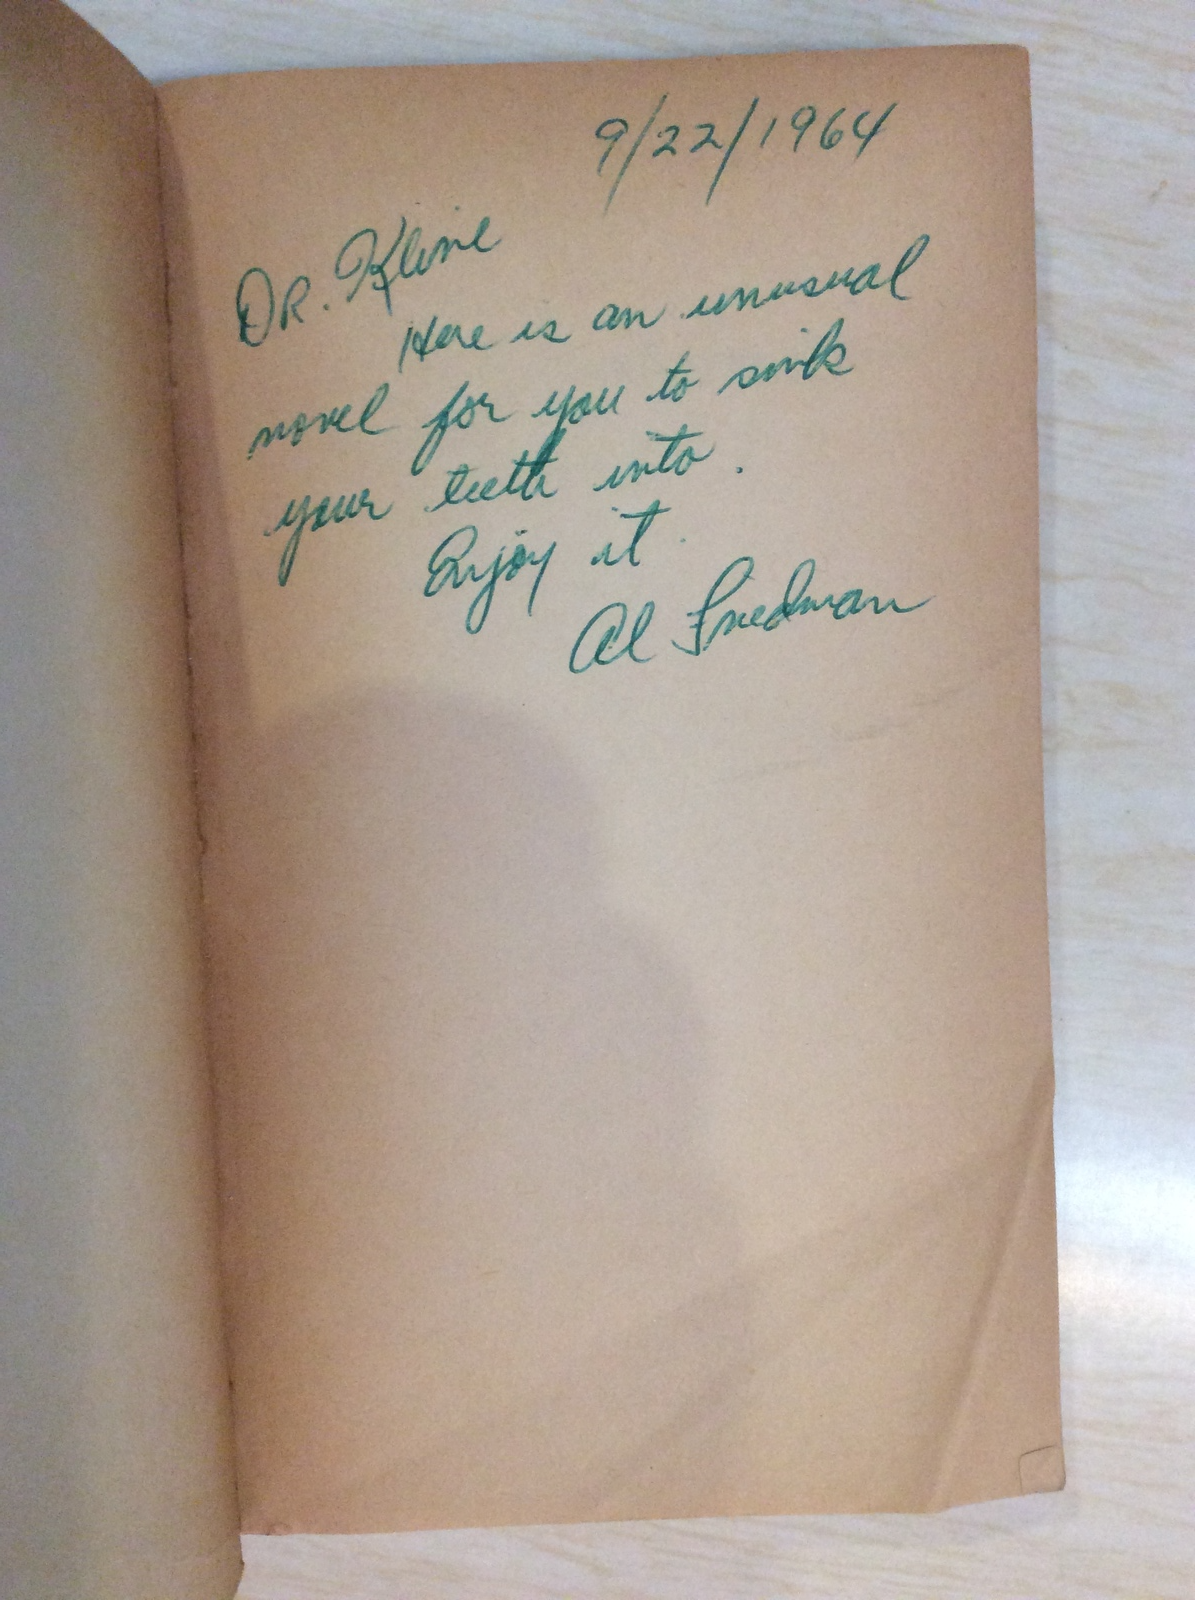 9/22/1964
DR. Kline
Here is an unusual
novel for you to sink
your teeth into.
Enjoy it.
Al Friedman